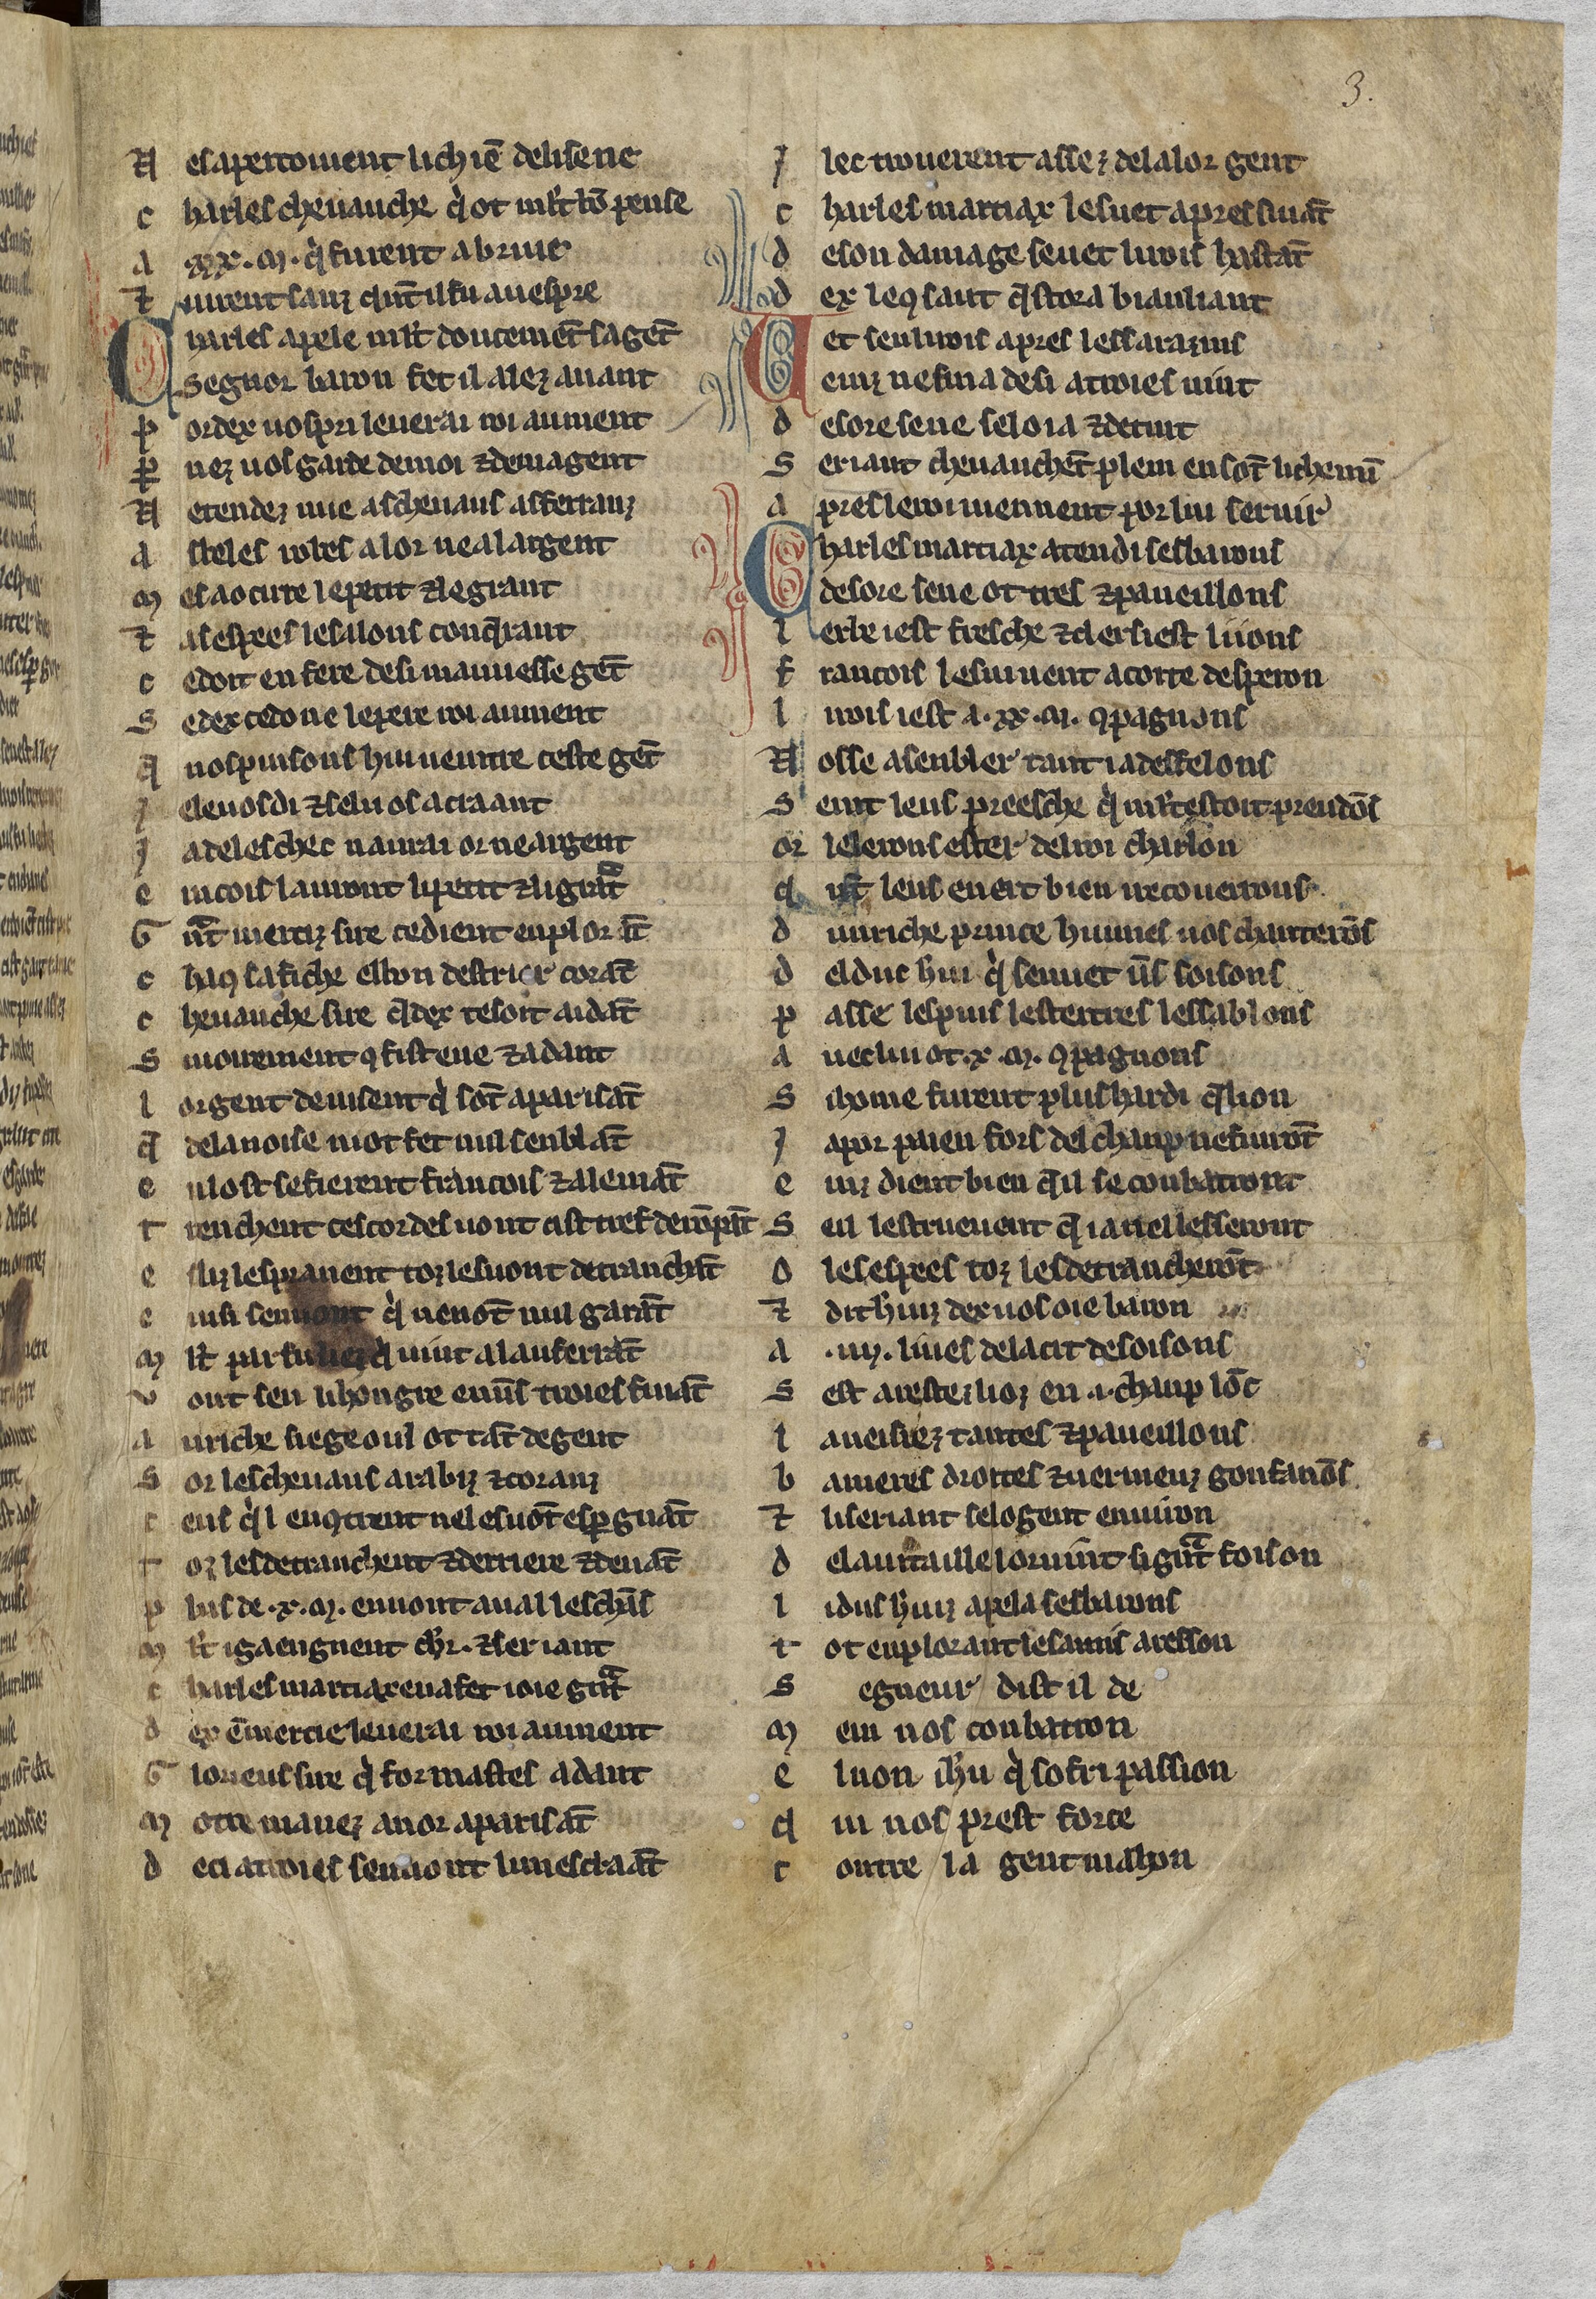 3.
N es apertoiuent li chiē de li sene
C harles cheuauche q̇ ot ml't bō pense
A .xx.M. q̇ furent abriue
⁊ uirent sanz q̃nt il fu auespre
C harles apele ml't doucemēt sa gēt
Segnor baron fet il alez auant
P or dex uos pri le uerai roi aument
P̲ nez uos garde de moi ⁊ de ma gent
N etendez mie as cheuaus as ferranz
A s beles robes a lor ne a largent
M es a ocirre le petit ⁊ le grant
⁊ as espees les alons conq̃rant
C e doit en fere de si mauuesse gēt
S e dex ce done le pere roi aument
Q̄ uos puisons hui ueintre ceste gēt
J e le uos di ⁊ sel uos acraant
J a del eschec naurai or ne argent
E incois lauront li petit ⁊ li grāt
G rāt merciz sire ce dient en plorāt
C haq9 safiche el bon destrier corāt
C heuauche sire q̃ dex te soit aidāt
S mouement 9 fist eue ⁊ adant
L or gent deuisent q̇ sōt aparisāt
Q̄ de la noise not fet nul senblāt
E n lost se fierent francois ⁊ alemāt
T renchent ces cordes uont cist tref derōpāt
E sliz lespranent toz les uont detranchāt
E insi q̇ nenōt nul garāt
M l't par q̇ uint a lauferrāt
V ont sen li hongre en uers troies fuiāt
A u riche siege ou il ot tāt de gent
S or les cheuaus arabiz ⁊ coranz
C eus q̇ l enq9trent nel es uōt esp̲gnāt
T oz les detranchent ⁊ derriere ⁊ deuāt
P lus de .x.M. en uont aual les chās
M l't i gaengnent chr̄. ⁊ seriant
C harles martiax en a fet ioie grāt
D ex ē mercie le uerai roi aument
G lorieus sire q̇ formastes adant
M ostre mauez anor aparisāt
D eci a troies sen uont lui esclaāt
J lec trouerent assez de la lor gent
C harles martiax les uet apres siuāt
D e son damage se uet li rois hastāt
D ex le q9saut q̃ stora biauliant
U et sen li rois apres les sarazins
einz ne fina desi a troies uint
D esore sene se loia ⁊ detint
S eriant cheuauchēt plein en sōt li chemī
A pres le roi uiennent por lui seruir
C harles martiax atendi ses barons
desore sene ot tres ⁊ paueillons
L erbe i est fresche ⁊ clers i est li ions
F rancois les iuent a corte desperon
L i rois i est a .xx.M. 9pagnons
N osse asenbler tant i a des felons
S eint leus preesche q̇ ml't estoit preudōs
Or lelerons ester del roi charlon
Q̄ nt leus en ert bien i recouerrons
D un riche prince huimes uos chanterōs
D el duc h'ui q̇ sen uet uers soisons
P asse les puis les tertres les sablons
A uec lui ot .x.M. 9pagnons
S i home furent plus hardi q̃ lion
J a por paien fors del chanp ne fuirōt
E inz dient bien q̃ il se conbatront
S eil les truevent q̃ ia nel lesseront
O les espees toz les detrancherōt
⁊ dit h'uiz dex uos oie baron
A .iiij. liues de la cit de soisons
S est arestez lioz en .i. chanp lōc
L a ueisiez tantes ⁊ paueillons
B anieres droites ⁊ uermeuz gonfanōs
⁊ li seriant se logent enuiron
D e la uitaille lor uint si grāt foison
L i dus h'uiz apela ses barons
T ot en plorant les a mis a resson
S egneur dist il de
M ein nos conbatron
E l non ihu q̇ sofri passion
Q ui nos prest force
C ontre la gent mahon